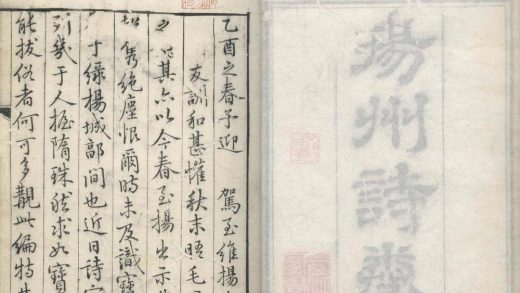 揚州詩
乙酉之春予迎 駕至維揚
友訓和甚懽秋末晤毛
其亦以今春至揚出示
雋絕塵恨爾時未及識寶
于綠楊城郭間也近日詩
列幾于人握隋珠然求如寶
能拔俗者何可多覯此編特